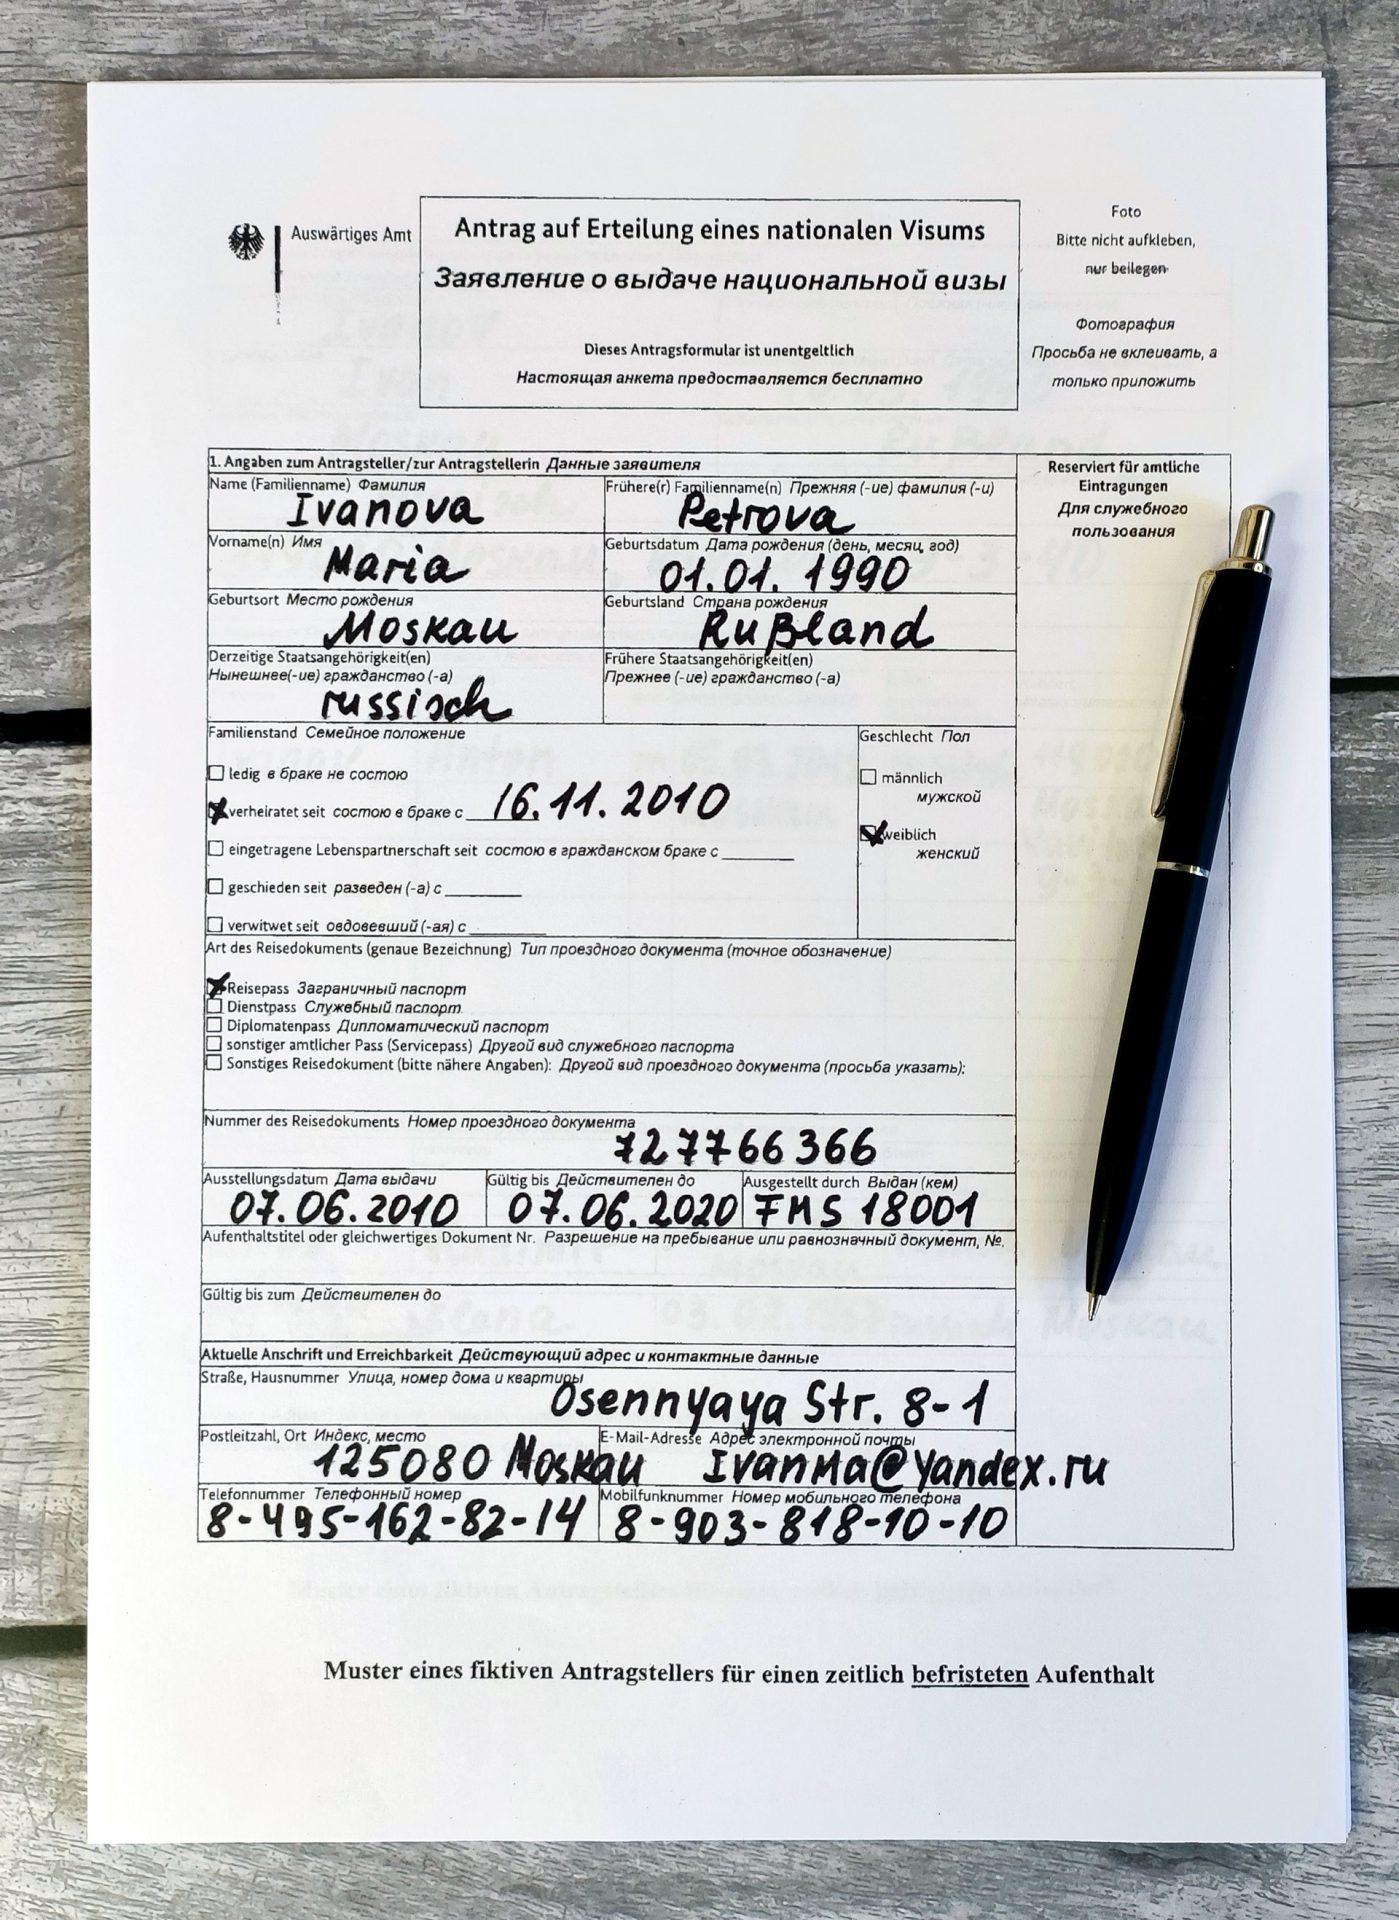 Auswärtiges Amt
Antrag auf Erteilung eines nationalen Visums
Заявление о выдаче национальной визы
Dieses Antragsformular ist unentgeltlich
Настоящая анкета предоставляется бесплатно
Foto
Bitte nicht aufkleben,
nur beilegen
Фотография
Просьба не вклеивать, а
только приложить
1. Angaben zum Antragsteller/zur Antragstellerin Данные заявителя
Name (Familienname) Фамилия
Ivanova
Frühere(r) Familienname(n) Прежняя (-ие) фамилия (-и)
Petrova
Vorname(n) Имя
Maria
Geburtsdatum Дата рождения (день, месяц, год)
01.01. 1990
Geburtsort Место рождения
Moskau
Geburtsland Страна рождения
Rußland
Derzeitige Staatsangehörigkeit(en)
Нынешнее(-ие) гражданство (-а)
russisch
Frühere Staatsangehörigkeit(en)
Прежнее (-ие) гражданство (-а)
Familienstand Семейное положение
ledig в браке не состою
verheiratet seit состою в браке с 16.11. 2010
eingetragene Lebenspartnerschaft seit состою в гражданском браке с
geschieden seit разведен (-а) с
verwitwet seit овдовевший (-ая) с
Geschlecht Пол
männlich
мужской
weiblich
женский
Reserviert für amtliche
Eintragungen
Для служебного
пользования
Art des Reisedokuments (genaue Bezeichnung) Тип проездного документа (точное обозначение)
Reisepass Заграничный паспорт
Dienstpass Служебный паспорт
Diplomatenpass Дипломатический паспорт
sonstiger amtlicher Pass (Servicepass) Другой вид служебного паспорта
Sonstiges Reisedokument (bitte nähere Angaben): Другой вид проездного документа (просьба указать):
Nummer des Reisedokuments Номер проездного документа
727766366
Ausstellungsdatum Дата выдачи
07.06.2010
Gültig bis Действителен до
07.06.2020
Ausgestellt durch Выдан (кем)
FMS 18001
Aufenthaltstitel oder gleichwertiges Dokument Nr. Разрешение на пребывание или равнозначный документ, №.
Gültig bis zum Действителен до
Aktuelle Anschrift und Erreichbarkeit Действующий адрес и контактные данные
Straße, Hausnummer Улица, номер дома и квартиры
Osennyaya Str. 8-1
Postleitzahl, Ort Индекс, место
125080 Moskau
E-Mail-Adresse Адрес электронной почты
IvanMa@yandex.ru
Telefonnummer Телефонный номер
8-495-162-82-14
Mobilfunknummer Номер мобильного телефона
8-903-818-10-10
Muster eines fiktiven Antragstellers für einen zeitlich befristeten Aufenthalt